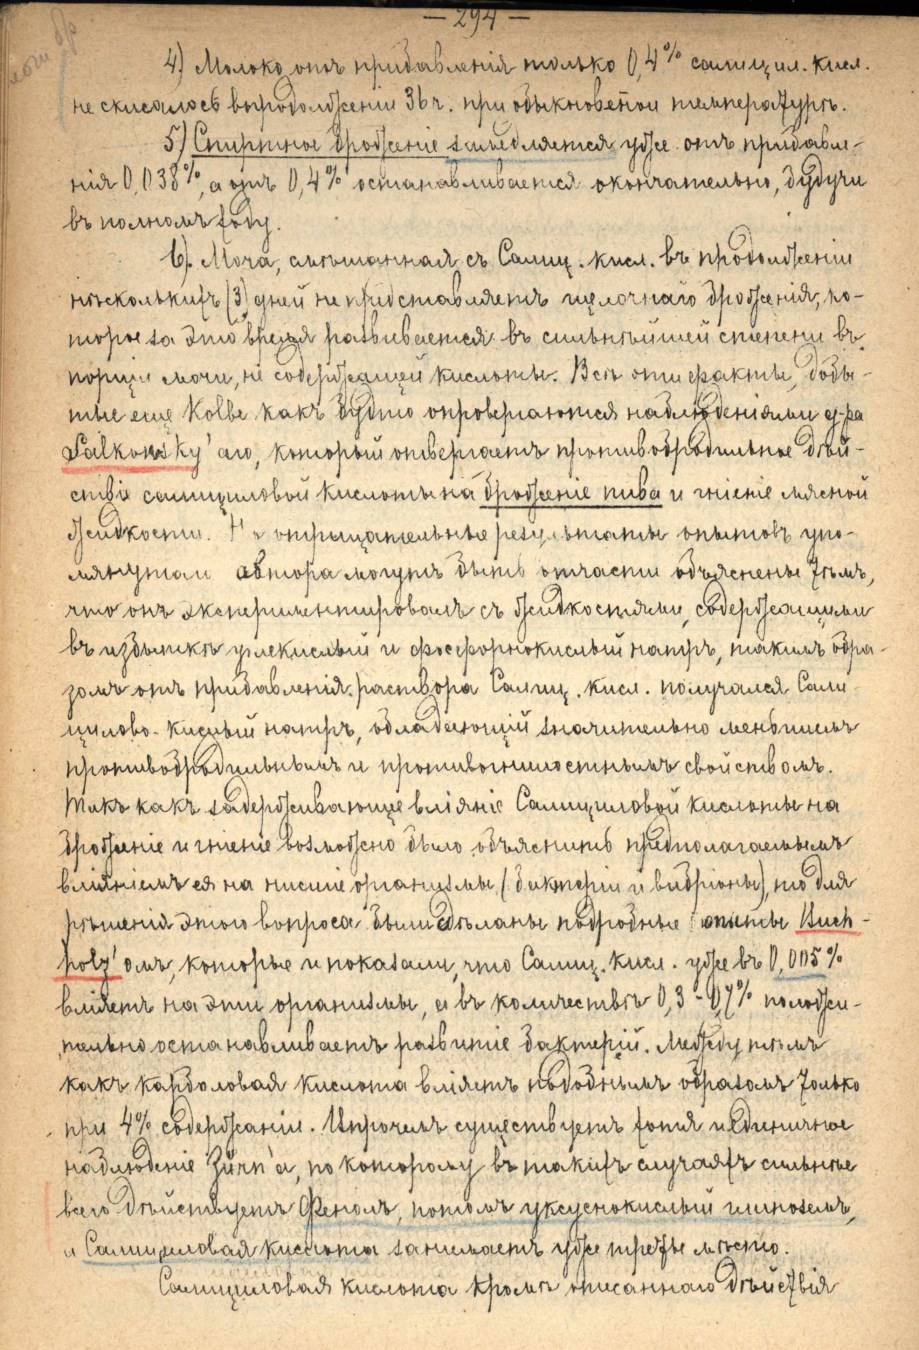 — 294 —
4) Молоко отъ прибавленія только 0,4% салицил. кисл.
не скисалось впродолженіи 36 ч. при обыкновеной температурѣ.
5) Спиртное броженіе замедляется уже отъ прибавле-
нія 0,038%, а отъ 0,4% останавливается окончательно, будучи
въ полномъ ходу.
6) Моча, смѣшанная съ Салиц. кисл. въ продолженіи
нѣсколькихъ (3) дней не представляетъ щелочнаго броженія, ко-
торое за это время развивается въ сильнѣйшей степени въ
порціи мочи, не содержащей кислоты. Всѣ эти факты, добы-
тые еще Kolbe какъ будто опровергаются наблюденіями д-ра
Salkowsky'аго, который отвергаетъ противобродильное дѣй-
ствіе салициловой кислоты на броженіе пива и гніеніе мясной
жидкости. Но отрицательные результаты опытовъ упо-
мянутаго автора могутъ быть отчасти объяснены тѣмъ,
что онъ экспериментировалъ съ жидкостями, содержащими
въ избыткѣ углекислый и фосфорнокислый натръ, такимъ обра-
зомъ отъ прибавленія раствора Салиц. кисл. получался Сали-
цилово-кислый натръ, обладающій значительно меньшимъ
противобродильнымъ и противогнилостнымъ свойствомъ.
Такъ какъ задерживающее вліяніе Салициловой кислоты на
броженіе и гніеніе возможно было объяснить предполагаемымъ
вліяніемъ ея на низшіе организмы (бактеріи и вибріоны), то для
рѣшенія этого вопроса были сдѣланы подробные опыты Buch-
holz'омъ, которые и показали, что Салиц. кисл. уже въ 0,005%
вліяетъ на эти организмы, а въ количествѣ 0,3 - 0,4% положи-
тельно останавливаетъ развитіе бактерій. Между тѣмъ
какъ карболовая кислота вліяетъ подобнымъ образомъ только
при 4% содержаніи. Впрочемъ существуетъ хотя и единичное
наблюденіе Zürn'а, по которому въ такихъ случаяхъ сильнѣе
всего дѣйствуетъ Фенолъ, потомъ уксуснокислый глиноземъ,
и Салициловая кислота занимаетъ уже третье мѣсто.
Салициловая кислота кромѣ описаннаго дѣйствія